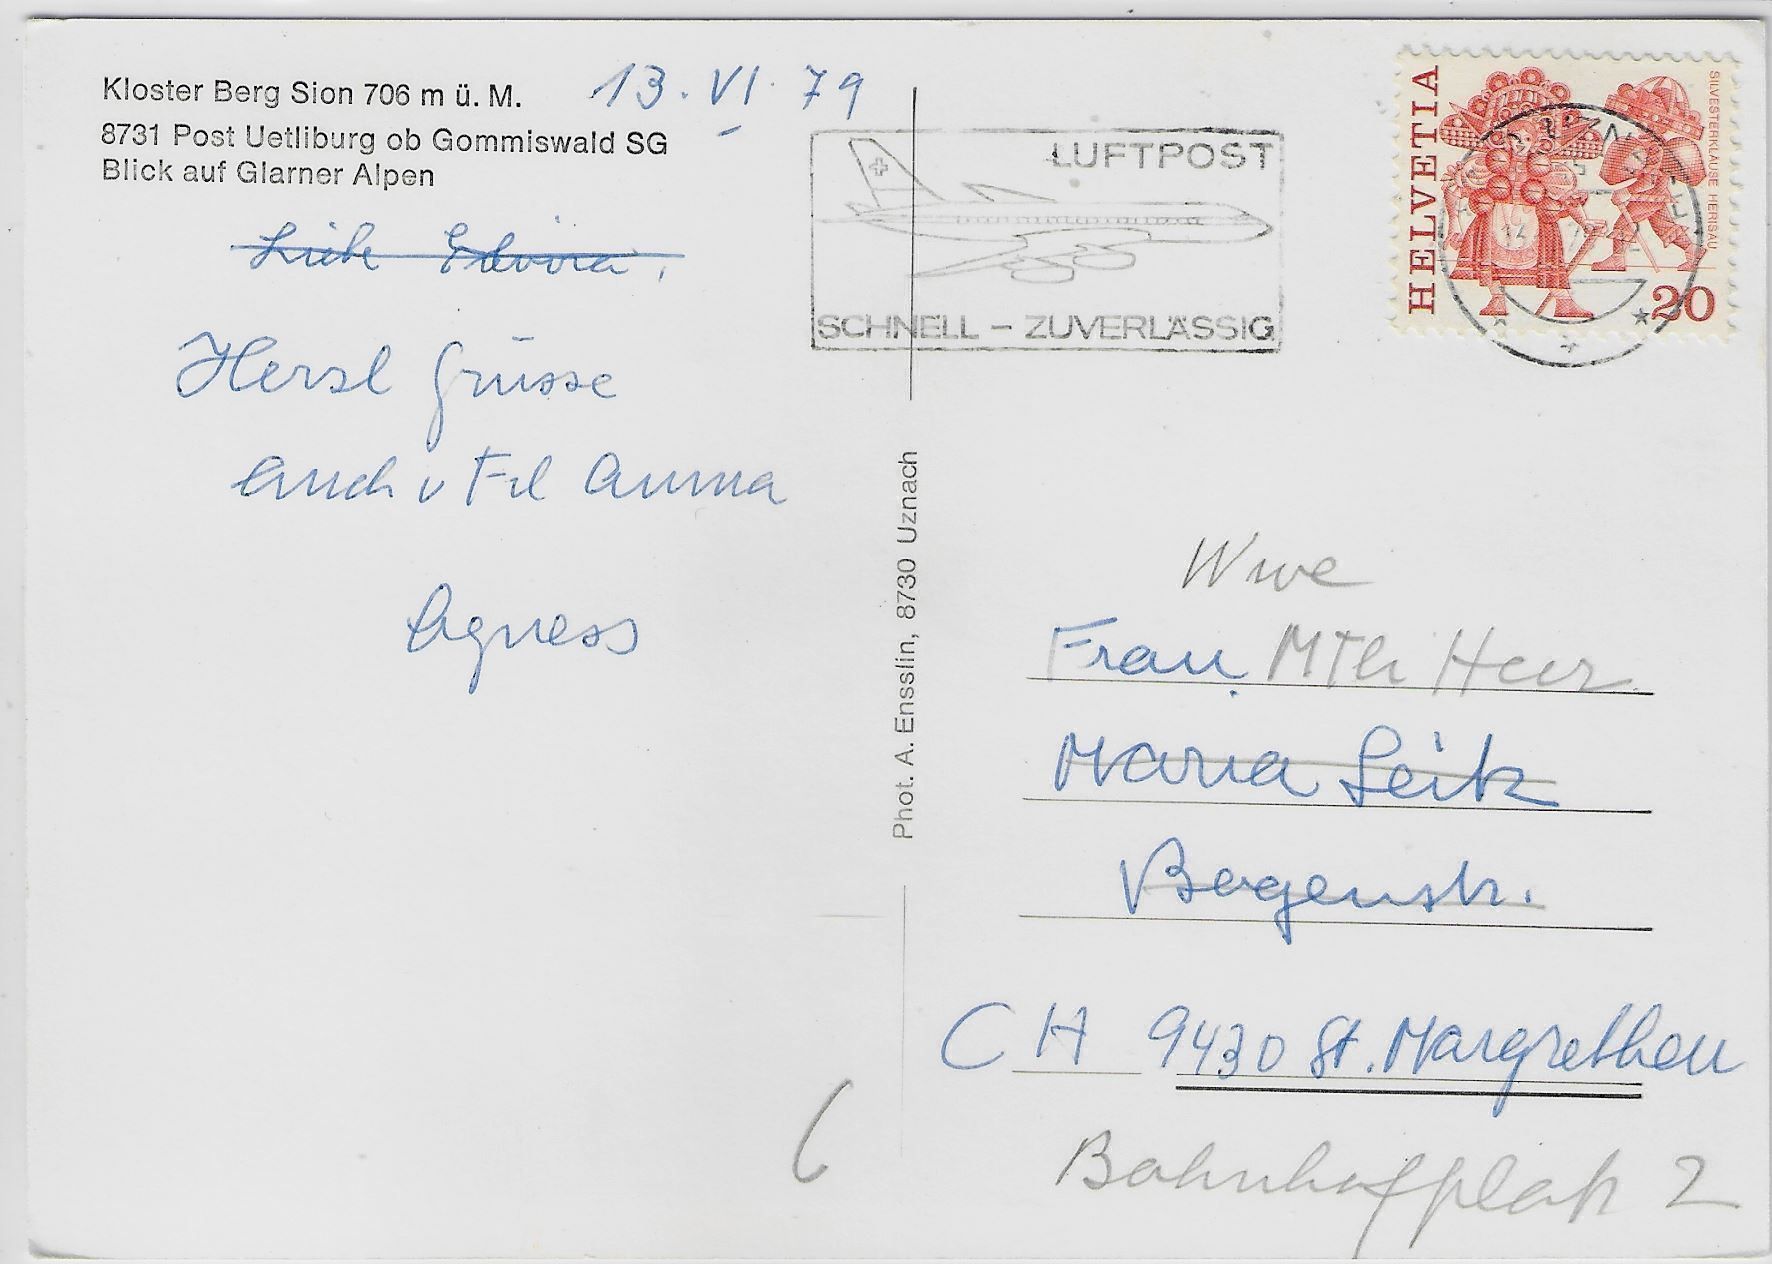 Kloster Berg Sion 706 m ü. M.
8731 Post Uetliburg ob Gommiswald SG
Blick auf Glarner Alpen
13. VI. 79
Liebe Elvira,
Herzl Grüsse
auch v Frl Anna
Agness
Phot. A. Ensslin, 8730 Uznach
LUFTPOST
SCHNELL – ZUVERLÄSSIG
HELVETIA
SILVESTERKLÄUSE HERISAU
20
Wwe
Frau MTh Heer
Maria Seitz
Bogenstr.
CH 9430 St. Margrethen
Bahnhofplatz 2
6